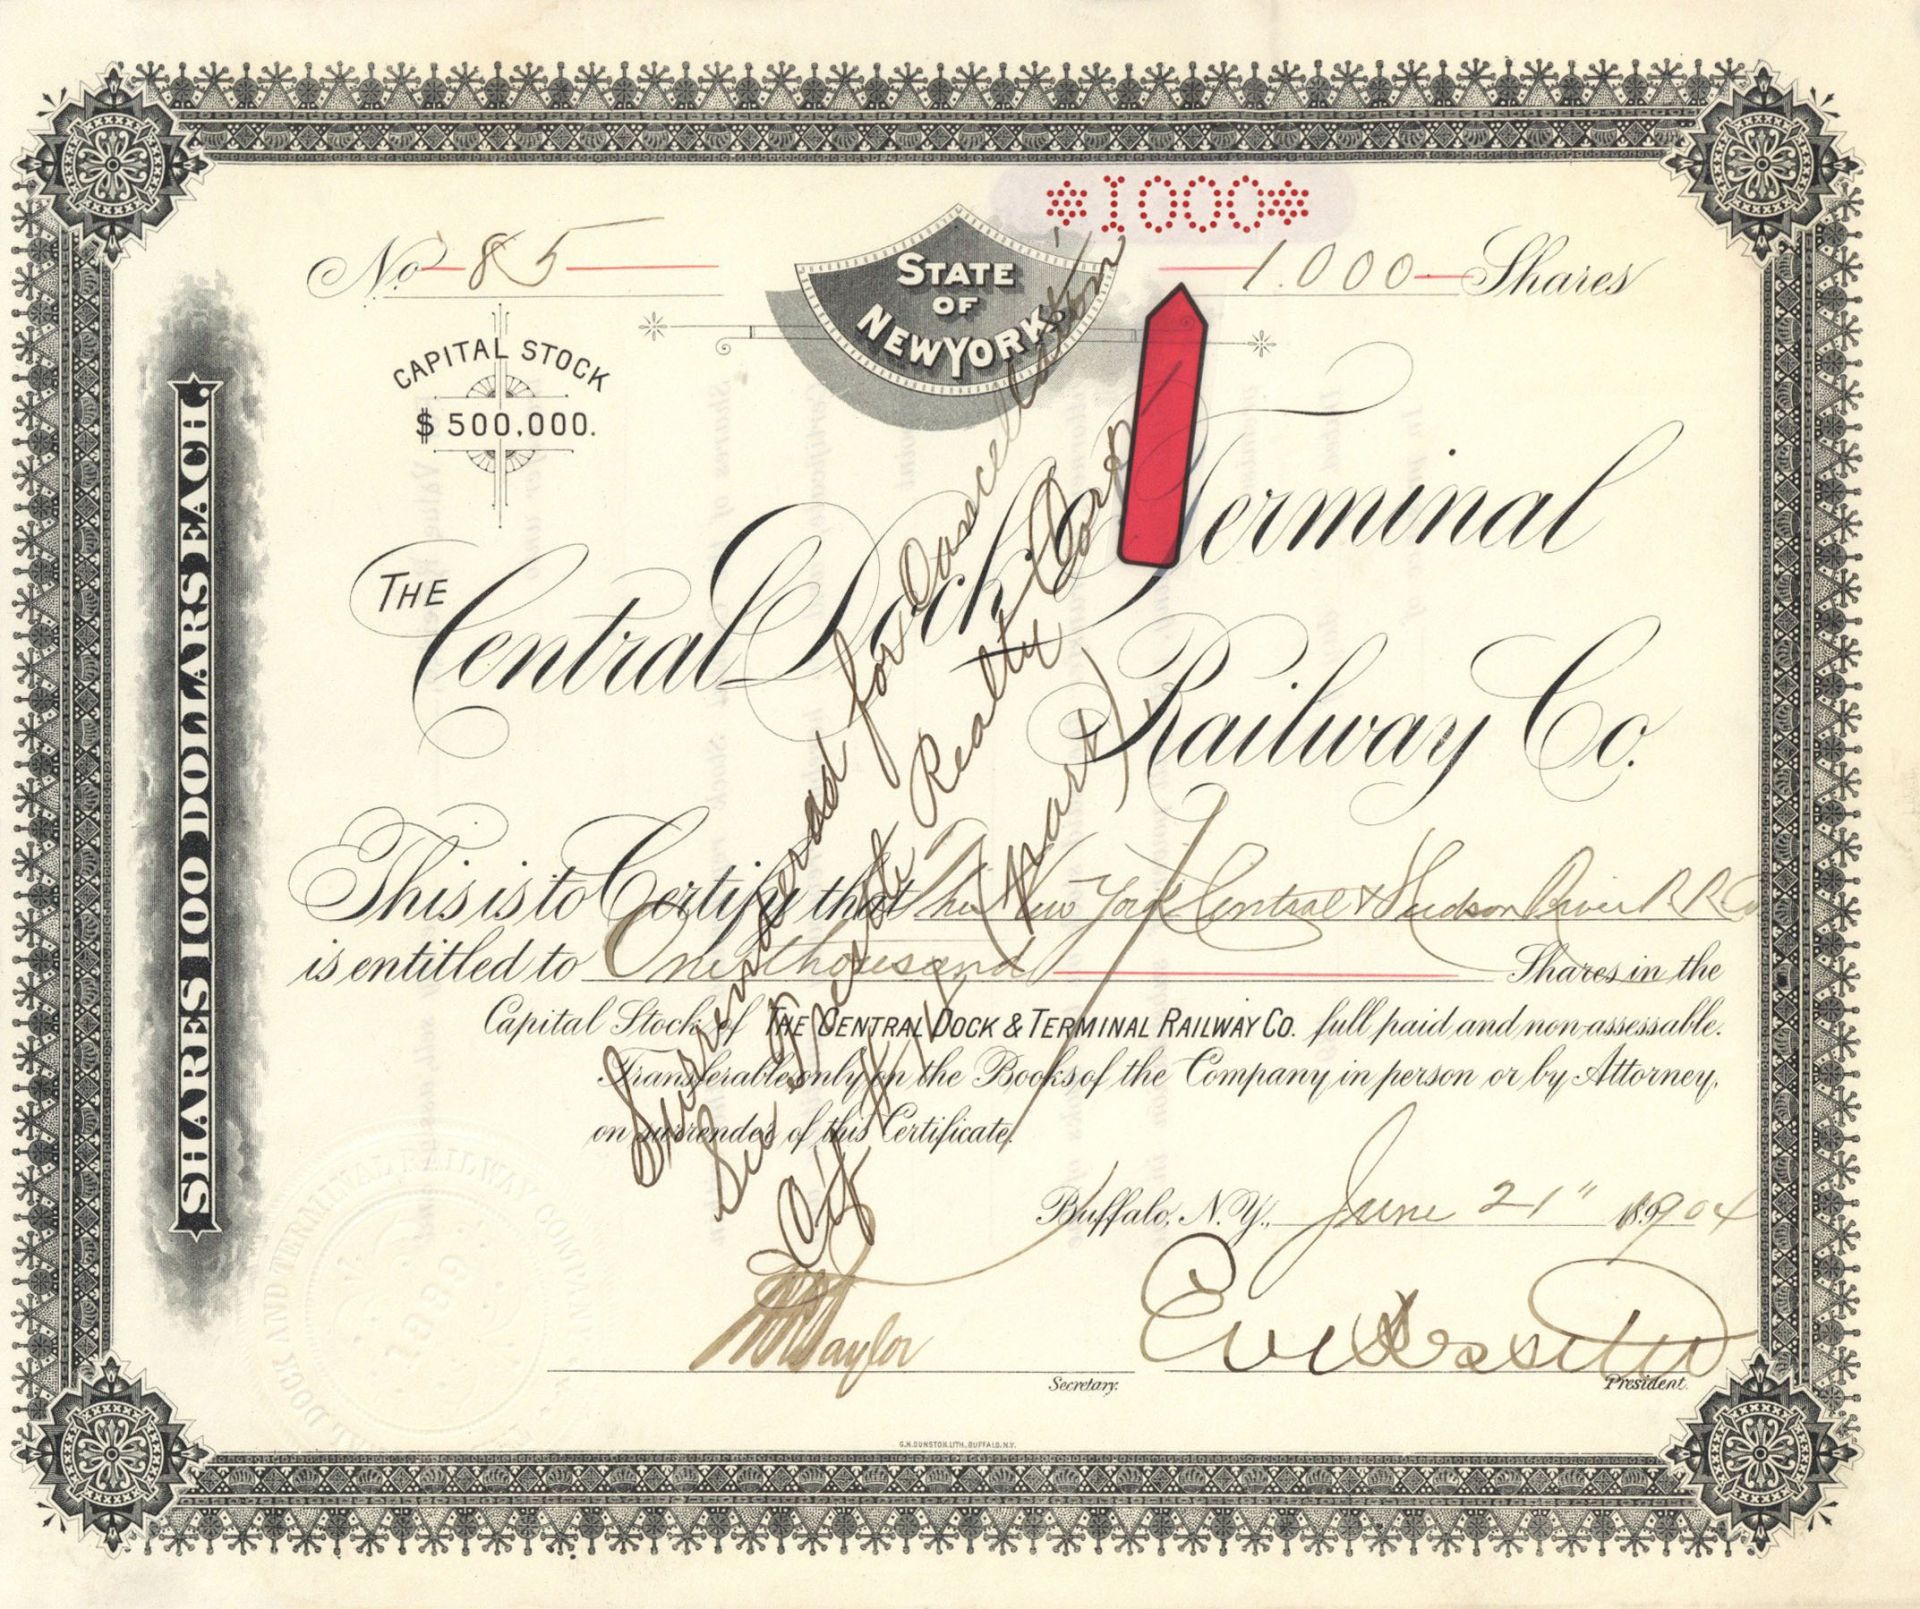 *1000*
No 85
1.000 Shares
STATE
OF
NEW YORK
CAPITAL STOCK
$500,000.
SHARES 100 DOLLARS EACH.
THE
Central Dock & Terminal
Railway Co.
This is to Certify that The New York Central & Hudson River R R Co
is entitled to One thousand Shares in the
Capital Stock of THE CENTRAL DOCK & TERMINAL RAILWAY CO. full paid and non-assessable.
Transferable only on the Books of the Company in person or by Attorney,
on surrender of this Certificate.
Surrendered for Cancellation
See Realty Corp
Ctf #
Buffalo, N.Y., June 21" 1904
Taylor
Secretary.
President.
G.H. DUNSTON LITH. BUFFALO, N.Y.
DOCK AND TERMINAL RAILWAY COMPANY
N.Y.
1899